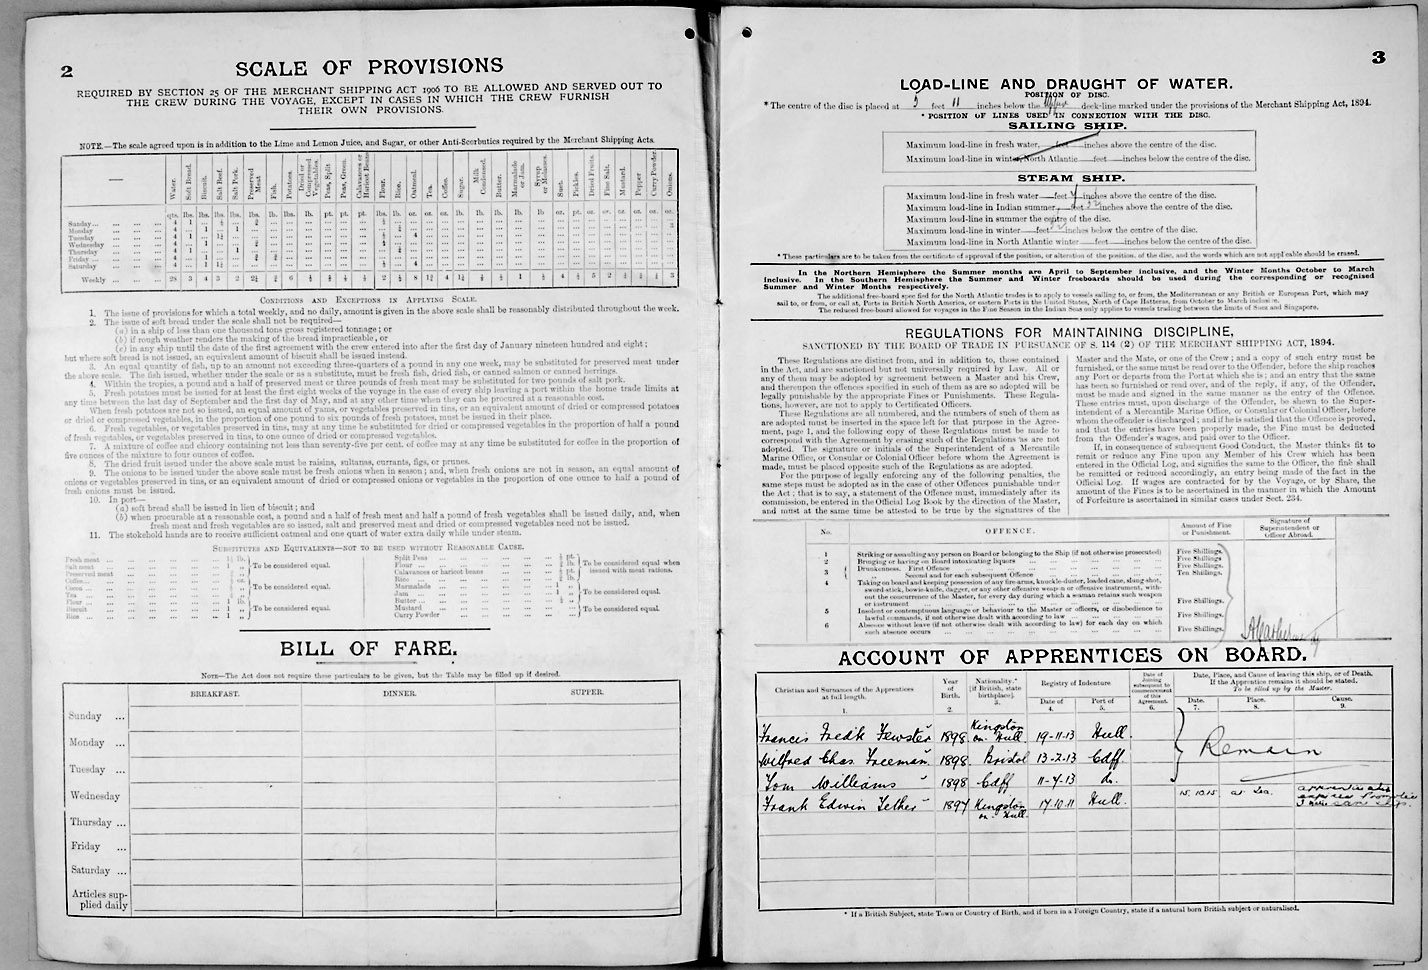 2
SCALE OF PROVISIONS
REQUIRED BY SECTION 25 OF THE MERCHANT SHIPPING ACT 1906 TO BE ALLOWED AND SERVED OUT TO
THE CREW DURING THE VOYAGE, EXCEPT IN CASES IN WHICH THE CREW FURNISH
THEIR OWN PROVISIONS.
NOTE.—The scale agreed upon is in addition to the Lime and Lemon Juice, and Sugar, or other Anti-Scorbutics required by the Merchant Shipping Acts.
Water. Soft Bread. Biscuit. Salt Beef. Salt Pork. Preserved Meat Fish. Potatoes. Dried or Compressed Vegetables. Peas, Split Peas, Green. Calavances or Haricot Beans Flour. Rice. Oatmeal. Tea. Coffee. Sugar. Milk Condensed. Butter. Marmalade or Jam. Syrup or Molasses. Suet. Pickles. Dried Fruits. Fine Salt. Mustard. Pepper Curry Powder. Onions.
qts. lbs. lbs. lbs. lbs. lbs. lbs. lbs. lb. pt. pt. pt. lbs. lb. oz. oz. oz. lbs. lb. lb. lb. lb oz. pt. oz. oz. oz. oz. oz. oz.
Sunday
Monday
Tuesday
Wednesday
Thursday
Friday
Saturday
Weekly
CONDITIONS AND EXCEPTIONS IN APPLYING SCALE.
1. The issue of provisions for which a total weekly, and no daily, amount is given in the above scale shall be reasonably distributed throughout the week.
2. The issue of soft bread under the scale shall not be required—
(a) in a ship of less than one thousand tons gross registered tonnage; or
(b) if rough weather renders the making of the bread impracticable, or
(c) in any ship until the date of the first agreement with the crew entered into after the first day of January nineteen hundred and eight;
but where soft bread is not issued, an equivalent amount of biscuit shall be issued instead.
3. An equal quantity of fish, up to an amount not exceeding three-quarters of a pound in any one week, may be substituted for preserved meat under
the above scale. The fish issued, whether under the scale or as a substitute, must be fresh fish, dried fish, or canned salmon or canned herrings.
4. Within the tropics, a pound and a half of preserved meat or three pounds of fresh meat may be substituted for two pounds of salt pork.
5. Fresh potatoes must be issued for at least the first eight weeks of the voyage in the case of every ship leaving a port within the home trade limits at
any time between the last day of September and the first day of May, and at any other time when they can be procured at a reasonable cost.
When fresh potatoes are not so issued, an equal amount of yams, or vegetables preserved in tins, or an equivalent amount of dried or compressed potatoes
or dried or compressed vegetables, in the proportion of one pound to six pounds of fresh potatoes, must be issued in their place.
6. Fresh vegetables, or vegetables preserved in tins, may at any time be substituted for dried or compressed vegetables in the proportion of half a pound
of fresh vegetables, or vegetables preserved in tins, to one ounce of dried or compressed vegetables.
7. A mixture of coffee and chicory containing not less than seventy-five per cent. of coffee may at any time be substituted for coffee in the proportion of
five ounces of the mixture to four ounces of coffee.
8. The dried fruit issued under the above scale must be raisins, sultanas, currants, figs, or prunes.
9. The onions to be issued under the above scale must be fresh onions when in season; and, when fresh onions are not in season, an equal amount of
onions or vegetables preserved in tins, or an equivalent amount of dried or compressed onions or vegetables in the proportion of one ounce to half a pound of
fresh onions must be issued.
10. In port—
(a) soft bread shall be issued in lieu of biscuit; and
(b) when procurable at a reasonable cost, a pound and a half of fresh meat and half a pound of fresh vegetables shall be issued daily, and, when
fresh meat and fresh vegetables are so issued, salt and preserved meat and dried or compressed vegetables need not be issued.
11. The stokehold hands are to receive sufficient oatmeal and one quart of water extra daily while under steam.
SUBSTITUTES AND EQUIVALENTS—NOT TO BE USED WITHOUT REASONABLE CAUSE.
Fresh meat
Salt meat
Preserved meat
To be considered equal.
Coffee
Cocoa
Tea
To be considered equal.
Flour
Biscuit
Rice
To be considered equal.
Split Peas
Flour
Calavances or haricot beans
Rice
To be considered equal when issued with meat rations.
Marmalade
Jam
Butter
To be considered equal.
Mustard
Curry Powder
To be considered equal.
BILL OF FARE.
NOTE—The Act does not require these particulars to be given, but the Table may be filled up if desired.
BREAKFAST. DINNER. SUPPER.
Sunday ...
Monday ...
Tuesday ...
Wednesday
Thursday ...
Friday ...
Saturday ...
Articles sup-
plied daily
3
LOAD-LINE AND DRAUGHT OF WATER.
POSITION OF DISC.
* The centre of the disc is placed at 5 feet 11 inches below the upper deck-line marked under the provisions of the Merchant Shipping Act, 1894.
* POSITION OF LINES USED IN CONNECTION WITH THE DISC.
SAILING SHIP.
Maximum load-line in fresh water, feet inches above the centre of the disc.
Maximum load-line in winter, North Atlantic feet inches below the centre of the disc.
STEAM SHIP.
Maximum load-line in fresh water feet inches above the centre of the disc.
Maximum load-line in Indian summer, feet inches above the centre of the disc.
Maximum load-line in summer the centre of the disc.
Maximum load-line in winter feet inches below the centre of the disc.
Maximum load-line in North Atlantic winter feet inches below the centre of the disc.
* These particulars are to be taken from the certificate of approval of the position, or alteration of the position, of the disc, and the words which are not applicable should be erased.
In the Northern Hemisphere the Summer months are April to September inclusive, and the Winter Months October to March
inclusive. In the Southern Hemisphere the Summer and Winter freeboards should be used during the corresponding or recognised
Summer and Winter Months respectively.
The additional free-board specified for the North Atlantic trades is to apply to vessels sailing to, or from, the Mediterranean or any British or European Port, which may
sail to, or from, or call at, Ports in British North America, or eastern Ports in the United States, North of Cape Hatteras, from October to March inclusive.
The reduced free-board allowed for voyages in the Fine Season in the Indian Seas only applies to vessels trading between the limits of Suez and Singapore.
REGULATIONS FOR MAINTAINING DISCIPLINE,
SANCTIONED BY THE BOARD OF TRADE IN PURSUANCE OF S. 114 (2) OF THE MERCHANT SHIPPING ACT, 1894.
These Regulations are distinct from, and in addition to, those contained
in the Act, and are sanctioned but not universally required by Law. All or
any of them may be adopted by agreement between a Master and his Crew,
and thereupon the offences specified in such of them as are so adopted will be
legally punishable by the appropriate Fines or Punishments. These Regula-
tions, however, are not to apply to Certificated Officers.
These Regulations are all numbered, and the numbers of such of them as
are adopted must be inserted in the space left for that purpose in the Agree-
ment, page 1, and the following copy of these Regulations must be made to
correspond with the Agreement by erasing such of the Regulations as are not
adopted. The signature or initials of the Superintendent of a Mercantile
Marine Office, or Consular or Colonial Officer before whom the Agreement is
made, must be placed opposite such of the Regulations as are adopted.
For the purpose of legally enforcing any of the following penalties, the
same steps must be adopted as in the case of other Offences punishable under
the Act; that is to say, a statement of the Offence must, immediately after its
commission, be entered in the Official Log Book by the direction of the Master,
and must at the same time be attested to be true by the signatures of the
Master and the Mate, or one of the Crew; and a copy of such entry must be
furnished, or the same must be read over to the Offender, before the ship reaches
any Port or departs from the Port at which she is; and an entry that the same
has been so furnished or read over, and of the reply, if any, of the Offender,
must be made and signed in the same manner as the entry of the Offence.
These entries must, upon discharge of the Offender, be shewn to the Super-
intendent of a Mercantile Marine Office, or Consular or Colonial Officer, before
whom the offender is discharged; and if he is satisfied that the Offence is proved,
and that the entries have been properly made, the Fine must be deducted
from the Offender's wages, and paid over to the Officer.
If, in consequence of subsequent Good Conduct, the Master thinks fit to
remit or reduce any Fine upon any Member of his Crew which has been
entered in the Official Log, and signifies the same to the Officer, the fine shall
be remitted or reduced accordingly, an entry being made of the fact in the
Official Log. If wages are contracted for by the Voyage, or by Share, the
amount of the Fines is to be ascertained in the manner in which the Amount
of Forfeiture is ascertained in similar cases under Sect. 234.
No. OFFENCE. Amount of Fine or Punishment. Signature of Superintendent or Officer Abroad.
1 Striking or assaulting any person on Board or belonging to the Ship (if not otherwise prosecuted) Five Shillings.
2 Bringing or having on Board intoxicating liquors Five Shillings.
3 Drunkenness. First Offence Five Shillings.
Second and for each subsequent Offence Ten Shillings.
4 Taking on board and keeping possession of any fire-arms, knuckle-duster, loaded cane, slung-shot,
sword-stick, bowie-knife, dagger, or any other offensive weapon or offensive instrument, with-
out the concurrence of the Master, for every day during which a seaman retains such weapon
or instrument Five Shillings.
5 Insolent or contemptuous language or behaviour to the Master or officers, or disobedience to
lawful commands, if not otherwise dealt with according to law Five Shillings.
6 Absence without leave (if not otherwise dealt with according to law) for each day on which
such absence occurs Five Shillings.
ACCOUNT OF APPRENTICES ON BOARD.
Christian and Surnames of the Apprentices at full length. Year of Birth. Nationality.* [if British, state birthplace]. Registry of Indenture Date of Joining subsequent to commencement of this Agreement. Date, Place, and Cause of leaving this ship, or of Death. If the Apprentice remains it should be stated. To be filled up by the Master.
Date of Port of Date. Place. Cause.
1. 2. 3. 4. 5. 6. 7. 8. 9.
Francis Fredk Fewster 1898 Kingston on Hull 19-11-13 Hull Remain
Wilfred Chas Freeman 1898 Bristol 13-2-13 Cdff
Tom Williams 1898 Cdff 11-4-13 do.
Frank Edwin Tether 1897 Kingston on Hull 17.10.11 Hull. 15.10.15 at Sea.
* If a British Subject, state Town or Country of Birth, and if born in a Foreign Country, state if a natural born British subject or naturalised.